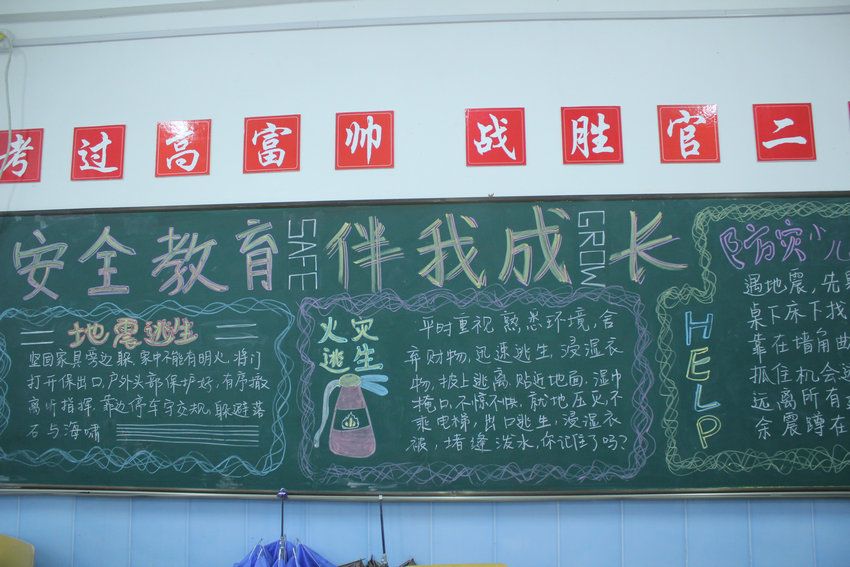 考过高富帅 战胜官二
安全教育 SAFE 伴我成长 GROW
地震逃生
坚固家具旁边躲,家中不能有明火,将门
打开保出口,户外头部保护好,有序撤
离听指挥,靠边停车守交规,躲避落
石与海啸
火灾
逃生
平时重视熟悉环境,舍
弃财物,迅速逃生,浸湿衣
物,披上逃离,贴近地面,湿巾
掩口,不惊不惧,就地压灭,不
乘电梯,出口逃生,浸湿衣
被,堵缝泼水,你记住了吗?
防灾小儿
HELP
遇地震,先
桌下床下找
靠在墙角
抓住机会
远离所有
余震蹲在